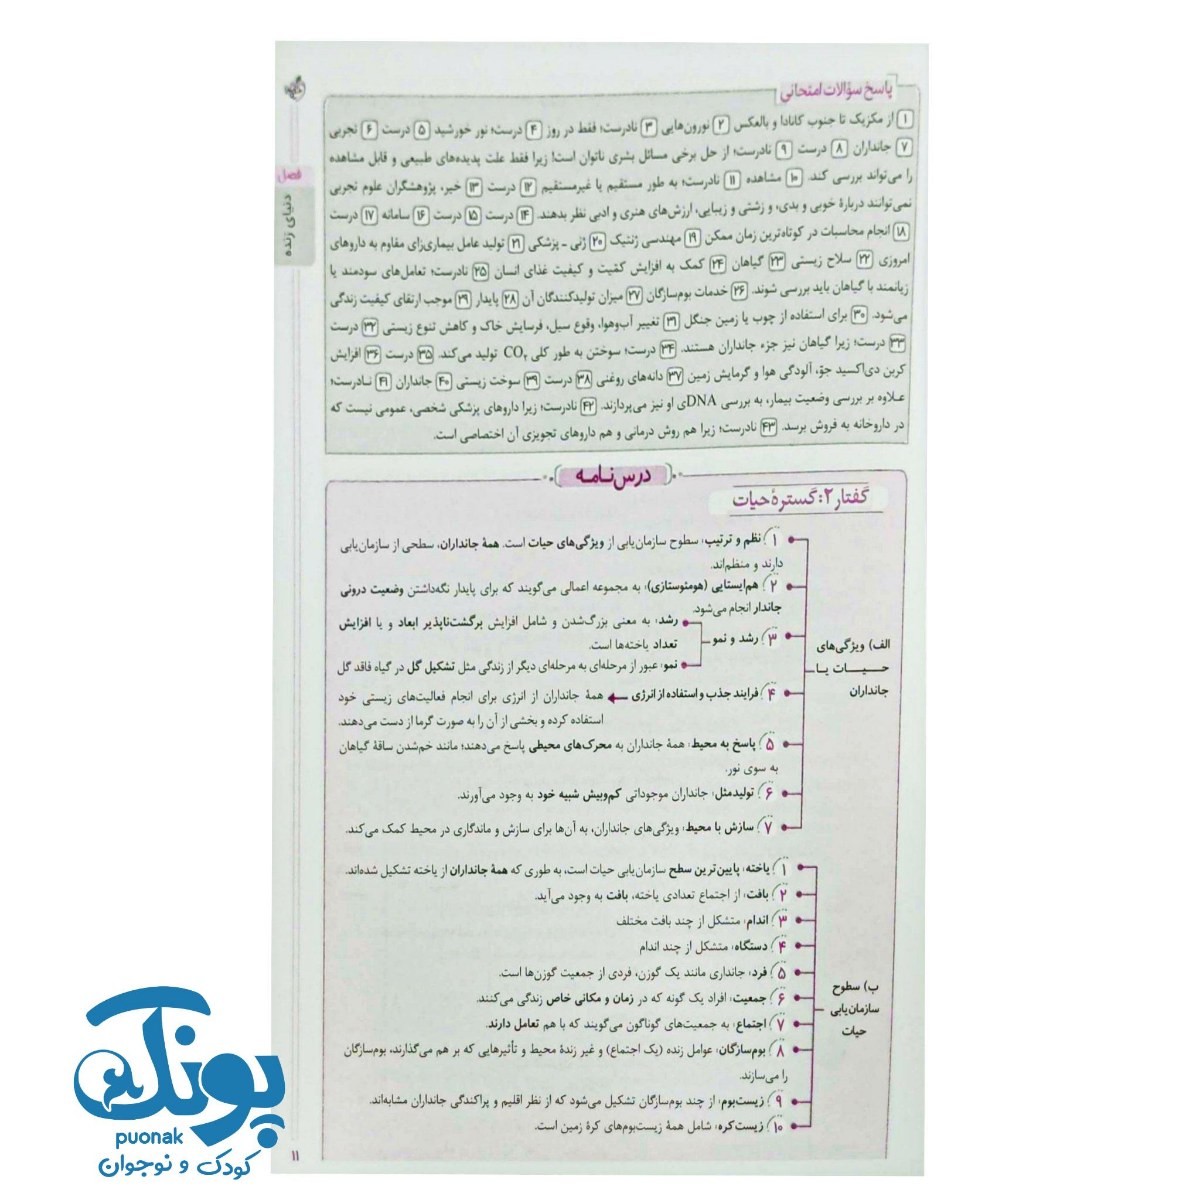 پاسخ سؤالات امتحانی
۱ از مکزیک تا جنوب کانادا و بالعکس ۲ نورون‌هایی ۳ نادرست؛ فقط در روز ۴ درست؛ نور خورشید ۵ درست ۶ تجربی
۷ جانداران ۸ درست ۹ نادرست؛ از حل برخی مسائل بشری ناتوان است! زیرا فقط علت پدیده‌های طبیعی و قابل مشاهده
را می‌تواند بررسی کند. ۱۰ مشاهده ۱۱ نادرست؛ به طور مستقیم یا غیرمستقیم ۱۲ درست ۱۳ خیر، پژوهشگران علوم تجربی
نمی‌توانند دربارهٔ خوبی و بدی، و زشتی و زیبایی، ارزش‌های هنری و ادبی نظر بدهند. ۱۴ درست ۱۵ درست ۱۶ سامانه ۱۷ درست
۱۸ انجام محاسبات در کوتاه‌ترین زمان ممکن ۱۹ مهندسی ژنتیک ۲۰ ژنی - پزشکی ۲۱ تولید عامل بیماری‌زای مقاوم به داروهای
امروزی ۲۲ سلاح زیستی ۲۳ گیاهان ۲۴ کمک به افزایش کمّیت و کیفیت غذای انسان ۲۵ نادرست؛ تعامل‌های سودمند یا
زیانمند با گیاهان باید بررسی شوند. ۲۶ خدمات بوم‌سازگان ۲۷ میزان تولیدکنندگان آن ۲۸ پایدار ۲۹ موجب ارتقای کیفیت زندگی
می‌شود. ۳۰ برای استفاده از چوب یا زمین جنگل ۳۱ تغییر آب‌وهوا، وقوع سیل، فرسایش خاک و کاهش تنوع زیستی ۳۲ درست
۳۳ درست؛ زیرا گیاهان نیز جزء جانداران هستند. ۳۴ درست؛ سوختن به طور کلی CO₂ تولید می‌کند. ۳۵ درست ۳۶ افزایش
کربن دی‌اکسید جوّ، آلودگی هوا و گرمایش زمین ۳۷ دانه‌های روغنی ۳۸ درست ۳۹ سوخت زیستی ۴۰ جانداران ۴۱ نادرست؛
علاوه بر بررسی وضعیت بیمار، به بررسی DNAی او نیز می‌پردازند. ۴۲ نادرست؛ زیرا داروهای پزشکی شخصی، عمومی نیست که
در داروخانه به فروش برسد. ۴۳ نادرست؛ زیرا هم روش درمانی و هم داروهای تجویزی آن اختصاصی است.
فصل
دنیای زنده
درس‌نامه
گفتار ۲: گسترهٔ حیات
الف) ویژگی‌های
حیات یا
جانداران
۱ نظم و ترتیب: سطوح سازمان‌یابی از ویژگی‌های حیات است. همهٔ جانداران، سطحی از سازمان‌یابی
دارند و منظم‌اند.
۲ هم‌ایستایی (هومئوستازی): به مجموعه اعمالی می‌گویند که برای پایدار نگه‌داشتن وضعیت درونی
جاندار انجام می‌شود.
۳ رشد و نمو
رشد: به معنی بزرگ‌شدن و شامل افزایش برگشت‌ناپذیر ابعاد و یا افزایش
تعداد یاخته‌ها است.
نمو: عبور از مرحله‌ای به مرحله‌ای دیگر از زندگی مثل تشکیل گل در گیاه فاقد گل
۴ فرایند جذب و استفاده از انرژی ← همهٔ جانداران از انرژی برای انجام فعالیت‌های زیستی خود
استفاده کرده و بخشی از آن را به صورت گرما از دست می‌دهند.
۵ پاسخ به محیط: همهٔ جانداران به محرک‌های محیطی پاسخ می‌دهند؛ مانند خم‌شدن ساقهٔ گیاهان
به سوی نور.
۶ تولیدمثل: جانداران موجوداتی کم‌وبیش شبیه خود به وجود می‌آورند.
۷ سازش با محیط: ویژگی‌های جانداران، به آن‌ها برای سازش و ماندگاری در محیط کمک می‌کند.
ب) سطوح
سازمان‌یابی
حیات
۱ یاخته: پایین‌ترین سطح سازمان‌یابی حیات است، به طوری که همهٔ جانداران از یاخته تشکیل شده‌اند.
۲ بافت: از اجتماع تعدادی یاخته، بافت به وجود می‌آید.
۳ اندام: متشکل از چند بافت مختلف
۴ دستگاه: متشکل از چند اندام
۵ فرد: جانداری مانند یک گوزن، فردی از جمعیت گوزن‌ها است.
۶ جمعیت: افراد یک گونه که در زمان و مکانی خاص زندگی می‌کنند.
۷ اجتماع: به جمعیت‌های گوناگون می‌گویند که با هم تعامل دارند.
۸ بوم‌سازگان: عوامل زنده (یک اجتماع) و غیر زندهٔ محیط و تأثیرهایی که بر هم می‌گذارند، بوم‌سازگان
را می‌سازند.
۹ زیست‌بوم: از چند بوم‌سازگان تشکیل می‌شود که از نظر اقلیم و پراکندگی جانداران مشابه‌اند.
۱۰ زیست‌کره: شامل همهٔ زیست‌بوم‌های کرهٔ زمین است.
۱۱
پونک
puonak
کودک و نوجوان